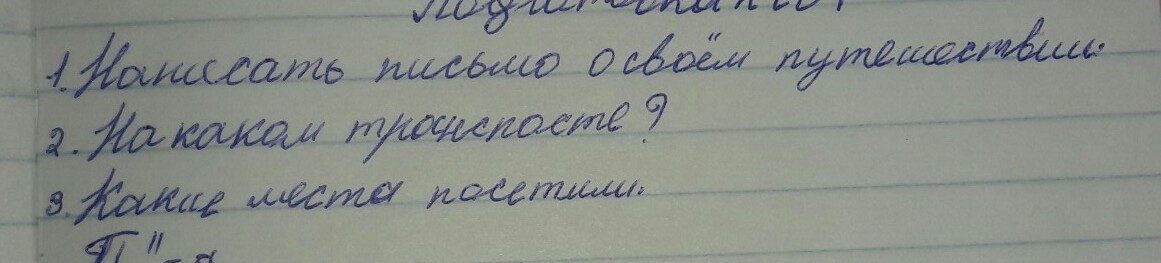 1. Написать письмо о своём путешествии.
2. На каком транспосте?
3. Какие места посетили.